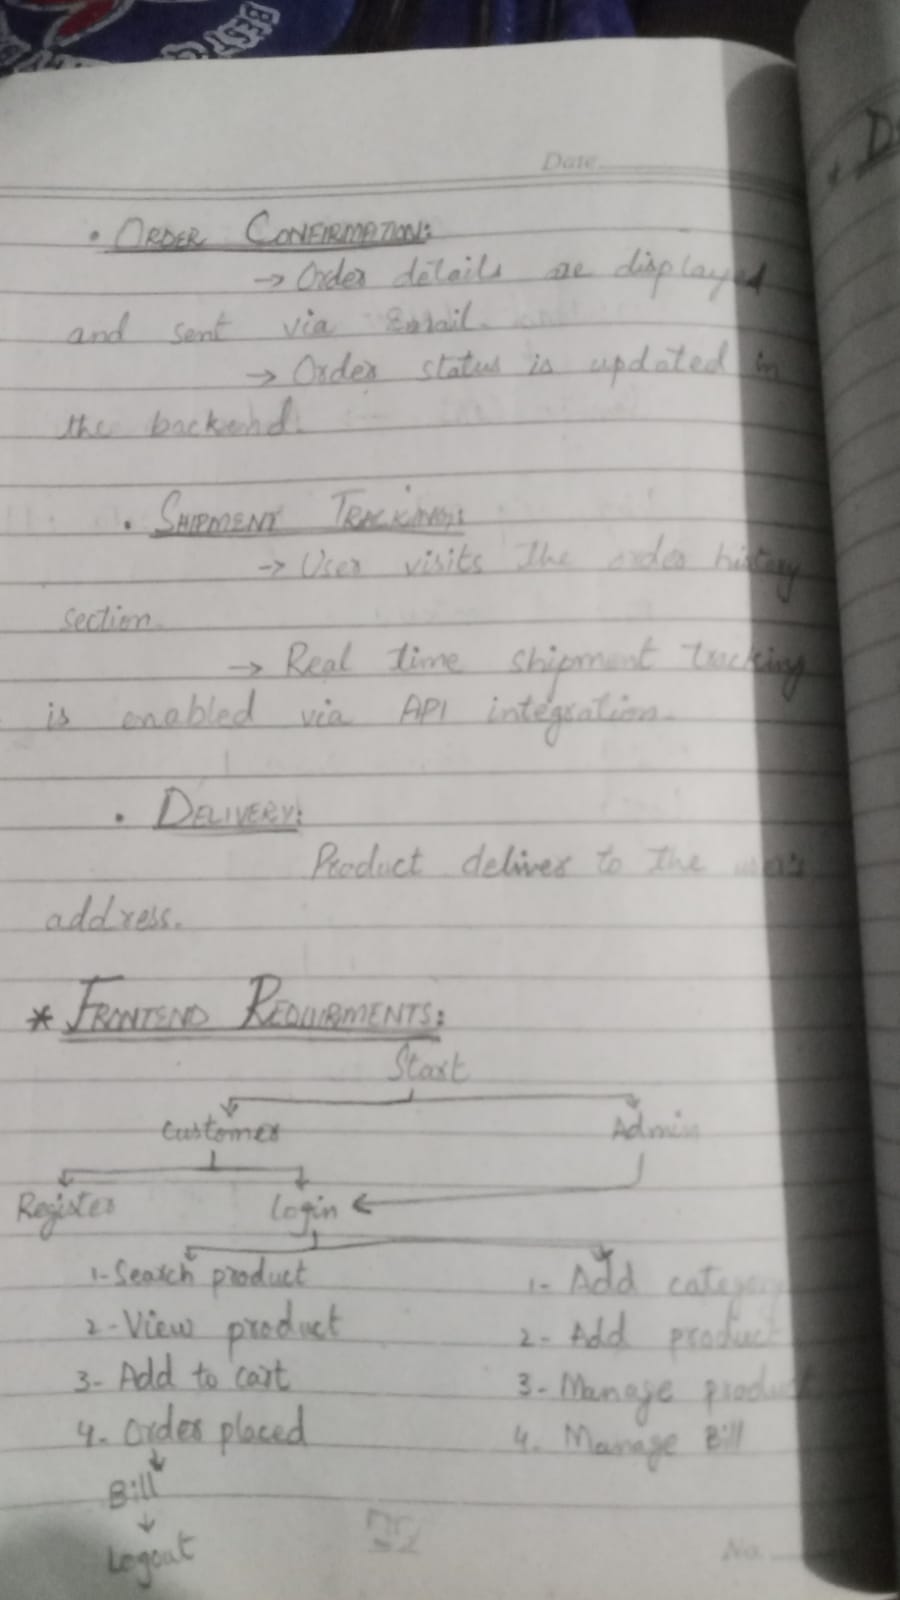 Date
• ORDER CONFIRMATION:
→ Order details are displayed
and sent via Email.
→ Order status is updated in
the backend.
• SHIPMENT TRACKING:
→ User visits the order history
section.
→ Real time shipment tracking
is enabled via API integration.
• DELIVERY:
Product deliver to the user's
address.
* FRONTEND REQUIRMENTS:
Start
Customer Admin
Register Login
1- Search product 1- Add category
2- View product 2- Add product
3- Add to cart 3- Manage product
4. Order placed 4. Manage Bill
↓
Bill
↓
Logout
No.